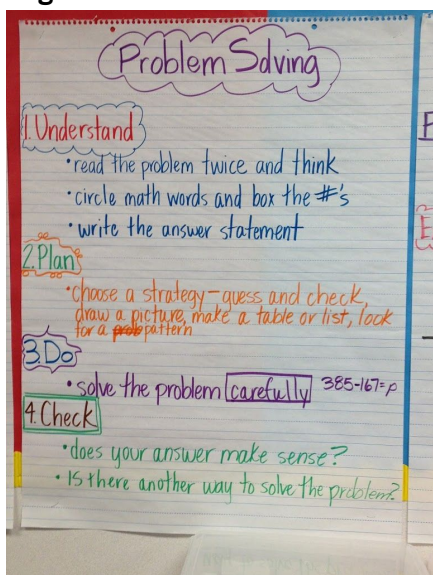 Problem Solving
1. Understand
• read the problem twice and think
• circle math words and box the #'s
• write the answer statement
2. Plan
• choose a strategy - guess and check,
draw a picture, make a table or list, look
for a pattern
3. Do
• solve the problem carefully 385-167=p
4. Check
• does your answer make sense?
• Is there another way to solve the problem?